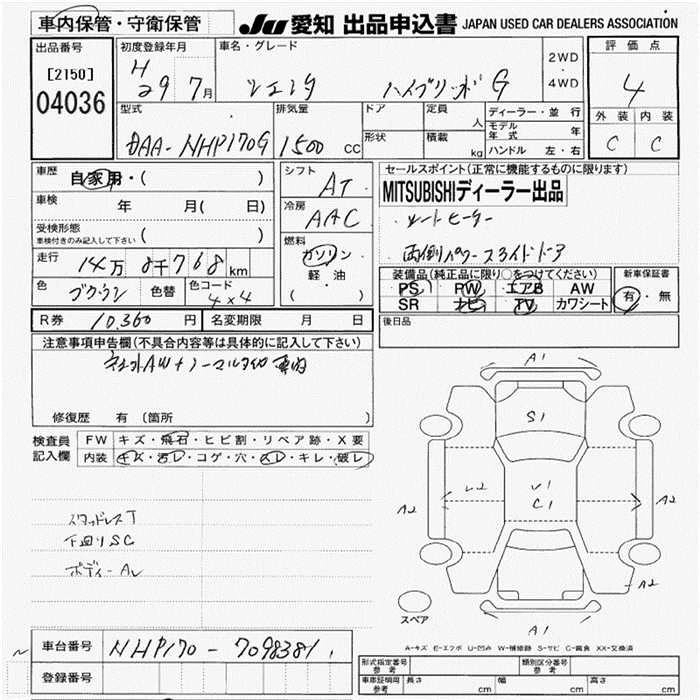 車内保管・守衛保管 JU 愛知 出品申込書 JAPAN USED CAR DEALERS ASSOCIATION
出品番号 初度登録年月 車名・グレード 評価点
[2150] H 2WD
04036 29 7月 シエンタ ハイブリッド G 4WD 4
型式 排気量 ドア 定員 人 ディーラー・並行 外装 内装
モデル年式 年
DAA-NHP170G 1500 CC 形状 積載 kg ハンドル 左・右 C C
車歴 自家用・( ) シフト AT セールスポイント(正常に機能するものに限ります)
MITSUBISHIディーラー出品
車検 年 月( 日) 冷房 AAC シートヒーター
受検形態
車検付きのみ記入して下さい ( ) 両側パワースライドドア
走行 14万 8千768km 燃料 ガソリン
軽・油
( ) 装備品(純正品に限り○をつけてください) 新車保証書
PS PW エアB AW 有・無
色 色替 色コード 4x4 SR ナビ TV カワシート
R券 10,360円 名変期限 月 日 後日品
注意事項申告欄(不具合内容等は具体的に記入して下さい)
修復歴 有 (箇所 )
検査員 FW キズ・飛石・ヒビ割・リペア跡・X要
記入欄 内装 キズ・汚レ・コゲ・穴・スレ・キレ・破レ
スタッドレスT
下回りSC
A1
S1
V1
C1
A2
A2
A2
A1
スペア
A-キズ E-エクボ U-凹み W-補修跡 S-サビ C-腐食 XX-交換済
車台番号 NHP170-7098381
登録番号
形式指定番号 参考 類別区分番号 参考
車庫証明用 参考 長さ cm 幅 cm 高さ cm